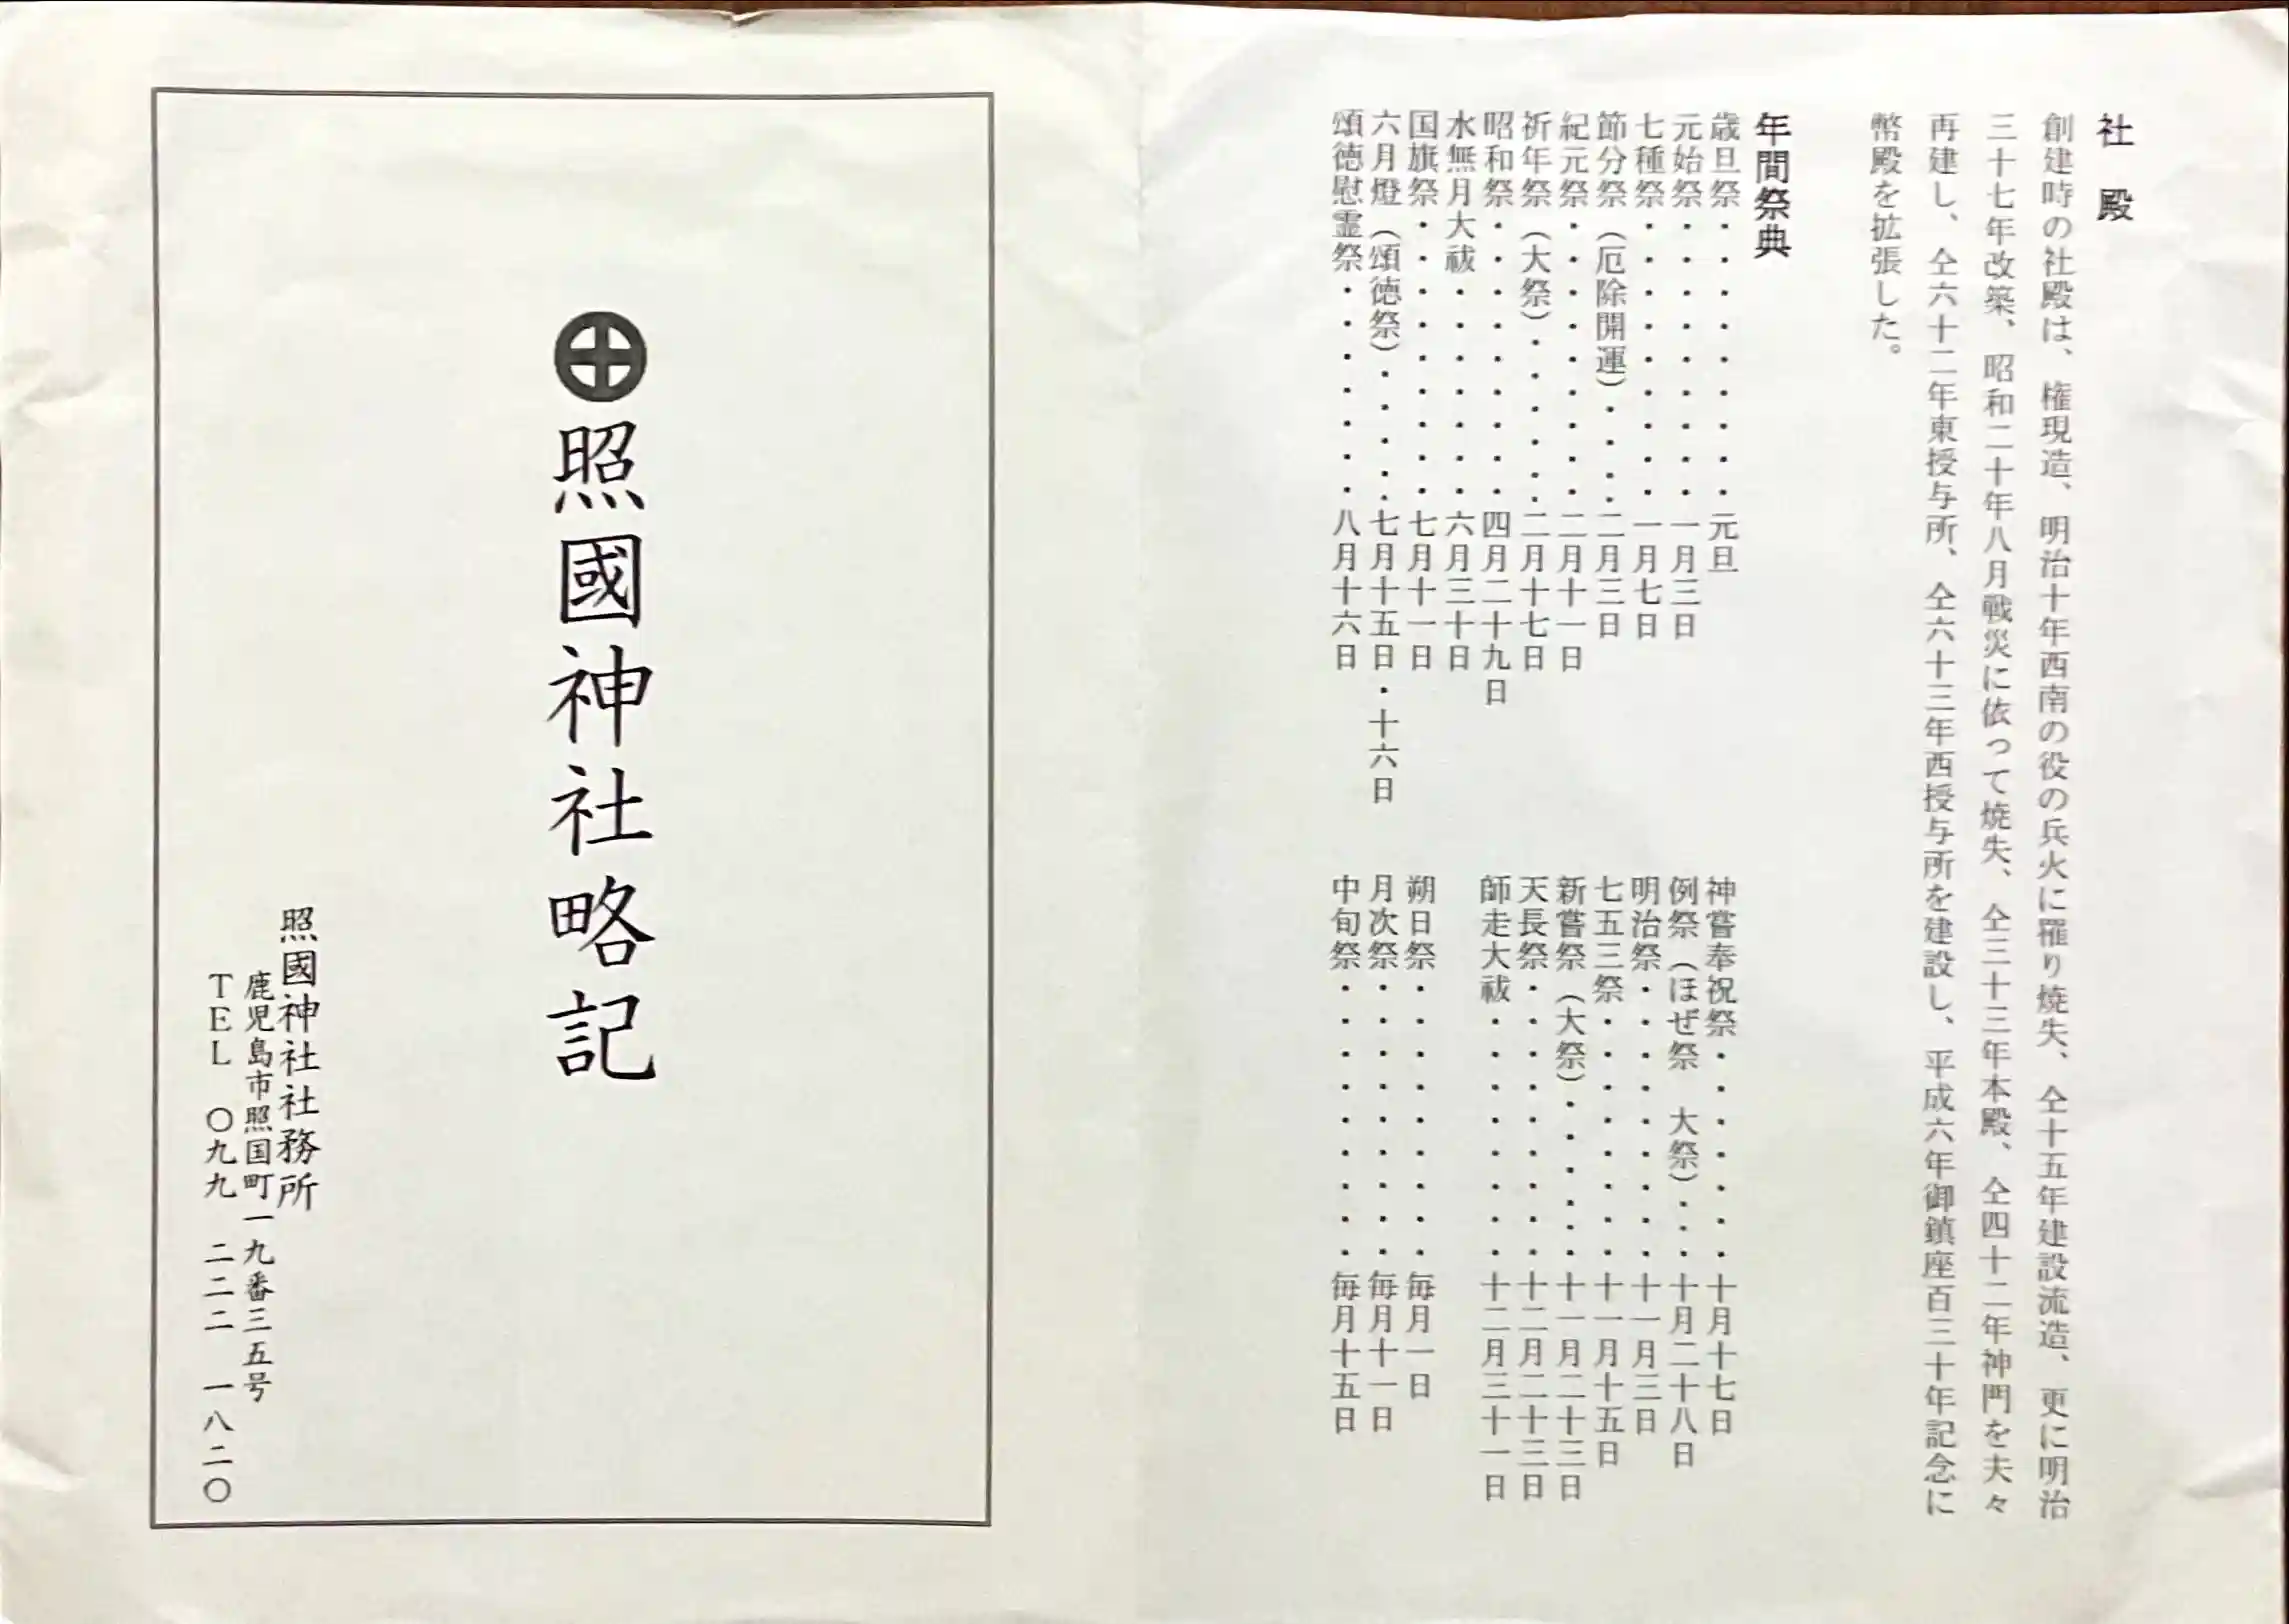 社　殿
創建時の社殿は、権現造、明治十年西南の役の兵火に罹り焼失、仝十五年建設流造、更に明治
三十七年改築、昭和二十年八月戦災に依って焼失、仝三十三年本殿、仝四十二年神門を夫々
再建し、仝六十二年東授与所、仝六十三年西授与所を建設し、平成六年御鎮座百三十年記念に
幣殿を拡張した。
年間祭典
歳旦祭・・・・・・・・・元旦
元始祭・・・・・・・・・一月三日
七種祭・・・・・・・・・一月七日
節分祭（厄除開運）・・・・二月三日
紀元祭・・・・・・・・・二月十一日
祈年祭（大祭）・・・・・・二月十七日
昭和祭・・・・・・・・・四月二十九日
水無月大祓・・・・・・・六月三十日
国旗祭・・・・・・・・・七月十一日
六月燈（頌徳祭）・・・・・七月十五日・十六日
頌徳慰霊祭・・・・・・・八月十六日
神嘗奉祝祭・・・・・・・十月十七日
例祭（ほぜ祭　大祭）・・・十月二十八日
明治祭・・・・・・・・・十一月三日
七五三祭・・・・・・・・十一月十五日
新嘗祭（大祭）・・・・・・十一月二十三日
天長祭・・・・・・・・・十二月二十三日
師走大祓・・・・・・・・十二月三十一日
朔日祭・・・・・・・・・毎月一日
月次祭・・・・・・・・・毎月十一日
中旬祭・・・・・・・・・毎月十五日
照國神社略記
照國神社社務所
鹿児島市照国町一九番三五号
ＴＥＬ　〇九九　二二二　一八二〇